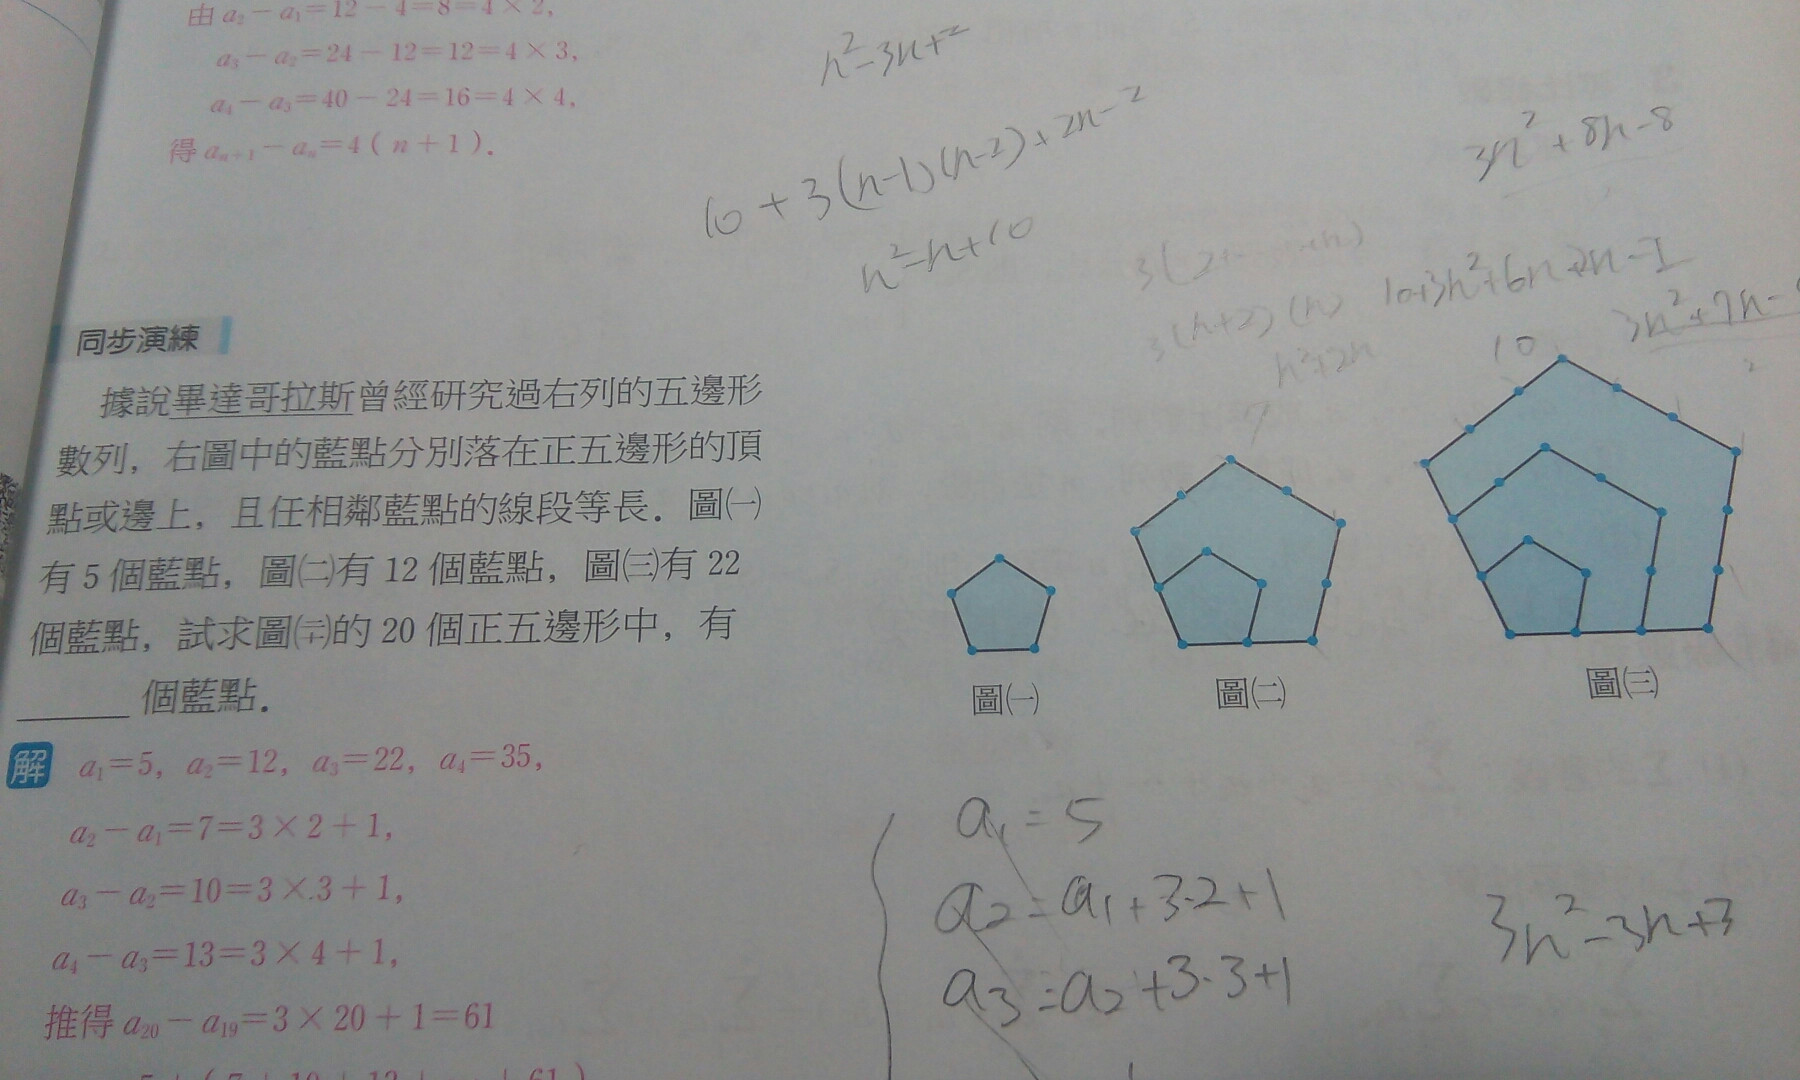 由 a₂－a₁＝12－4＝8＝4×2，
a₃－a₂＝24－12＝12＝4×3，
a₄－a₃＝40－24＝16＝4×4，
得 aₙ₊₁－aₙ＝4（n＋1）．
n²-3n+2
10+3(n-1)(n-2)+2n-2
n²-n+10
3n²+8n-8
3(n+2)(n)
n²+2n
10+3n²+6n+2n-1
3n²+7n-
10
7
同步演練
據說畢達哥拉斯曾經研究過右列的五邊形
數列，右圖中的藍點分別落在正五邊形的頂
點或邊上，且任相鄰藍點的線段等長．圖㈠
有 5 個藍點，圖㈡有 12 個藍點，圖㈢有 22
個藍點，試求圖(二十)的 20 個正五邊形中，有
＿＿＿個藍點．
圖㈠
圖㈡
圖㈢
解 a₁＝5，a₂＝12，a₃＝22，a₄＝35，
a₂－a₁＝7＝3×2＋1，
a₃－a₂＝10＝3×3＋1，
a₄－a₃＝13＝3×4＋1，
推得 a₂₀－a₁₉＝3×20＋1＝61
a₁=5
a₂=a₁+3·2+1
a₃=a₂+3·3+1
3n²-3n+3